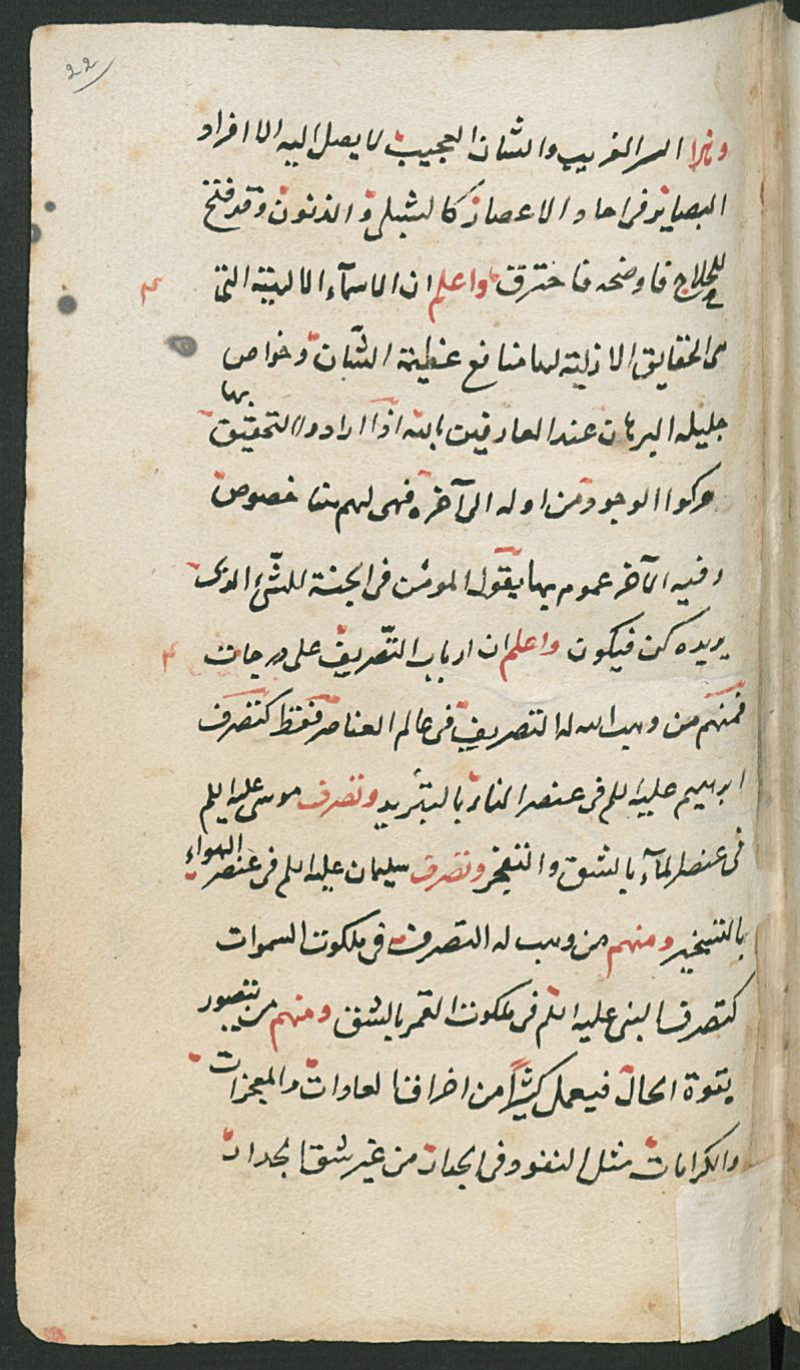 22
وهذا السر الغريب والشان العجيب لا يصل اليه الا افراد
البصاير في احاد الاعصار كالشبلي وذ النون وقد فتح
للحلاج فاوضحه فاحترق واعلم ان الاسمآء الالهية التي
هي الحقايق الازلية لها منافع عظيمة الشان وخواص
جليله البرهان عند العارفين بالله اذا ارادوا التحقيق بها
حركوا الوجود من اوله الى آخره فهي لهم هنا خصوص
وفيه الآخر عموم بها يقول المومن في الجنة للشئ الذى
يريده كن فيكون واعلم ان ارباب التصريف على درجات
فمنهم من وهب الله له التصريف في عالم العناصر فقط كتصرف
ابرهيم عليه السلم في عنصر النار بالتبريد وتصرف موسى عليه السلم
في عنصر المآء بالشق والتفجر وتصرف سليمان عليه السلم في عنصر الهواء
بالتسخير ومنهم من وهب له التصرف في ملكوت السموات
كتصرف النبي عليه السلم في ملكوت القمر بالشق ومنهم من يتصور
بقوة الحال فيعمل كثيرا من اخراق العادات والمعجزات
والكرامات مثل النفوذ في الجدار من غير شق الجدار